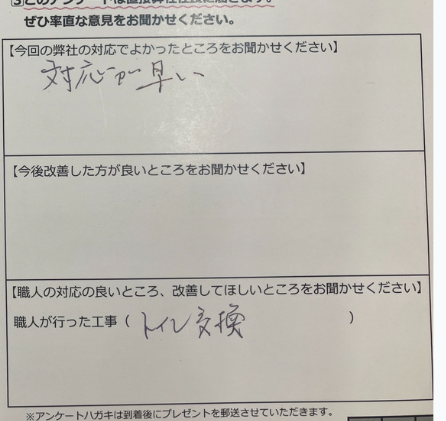 ③このアンケートは直接弊社社長に届きます。
ぜひ率直な意見をお聞かせください。
【今回の弊社の対応でよかったところをお聞かせください】
対応が早い
【今後改善した方が良いところをお聞かせください】
【職人の対応の良いところ、改善してほしいところをお聞かせください】
職人が行った工事（ トイレ交換 ）
※アンケートハガキは到着後にプレゼントを郵送させていただきます。